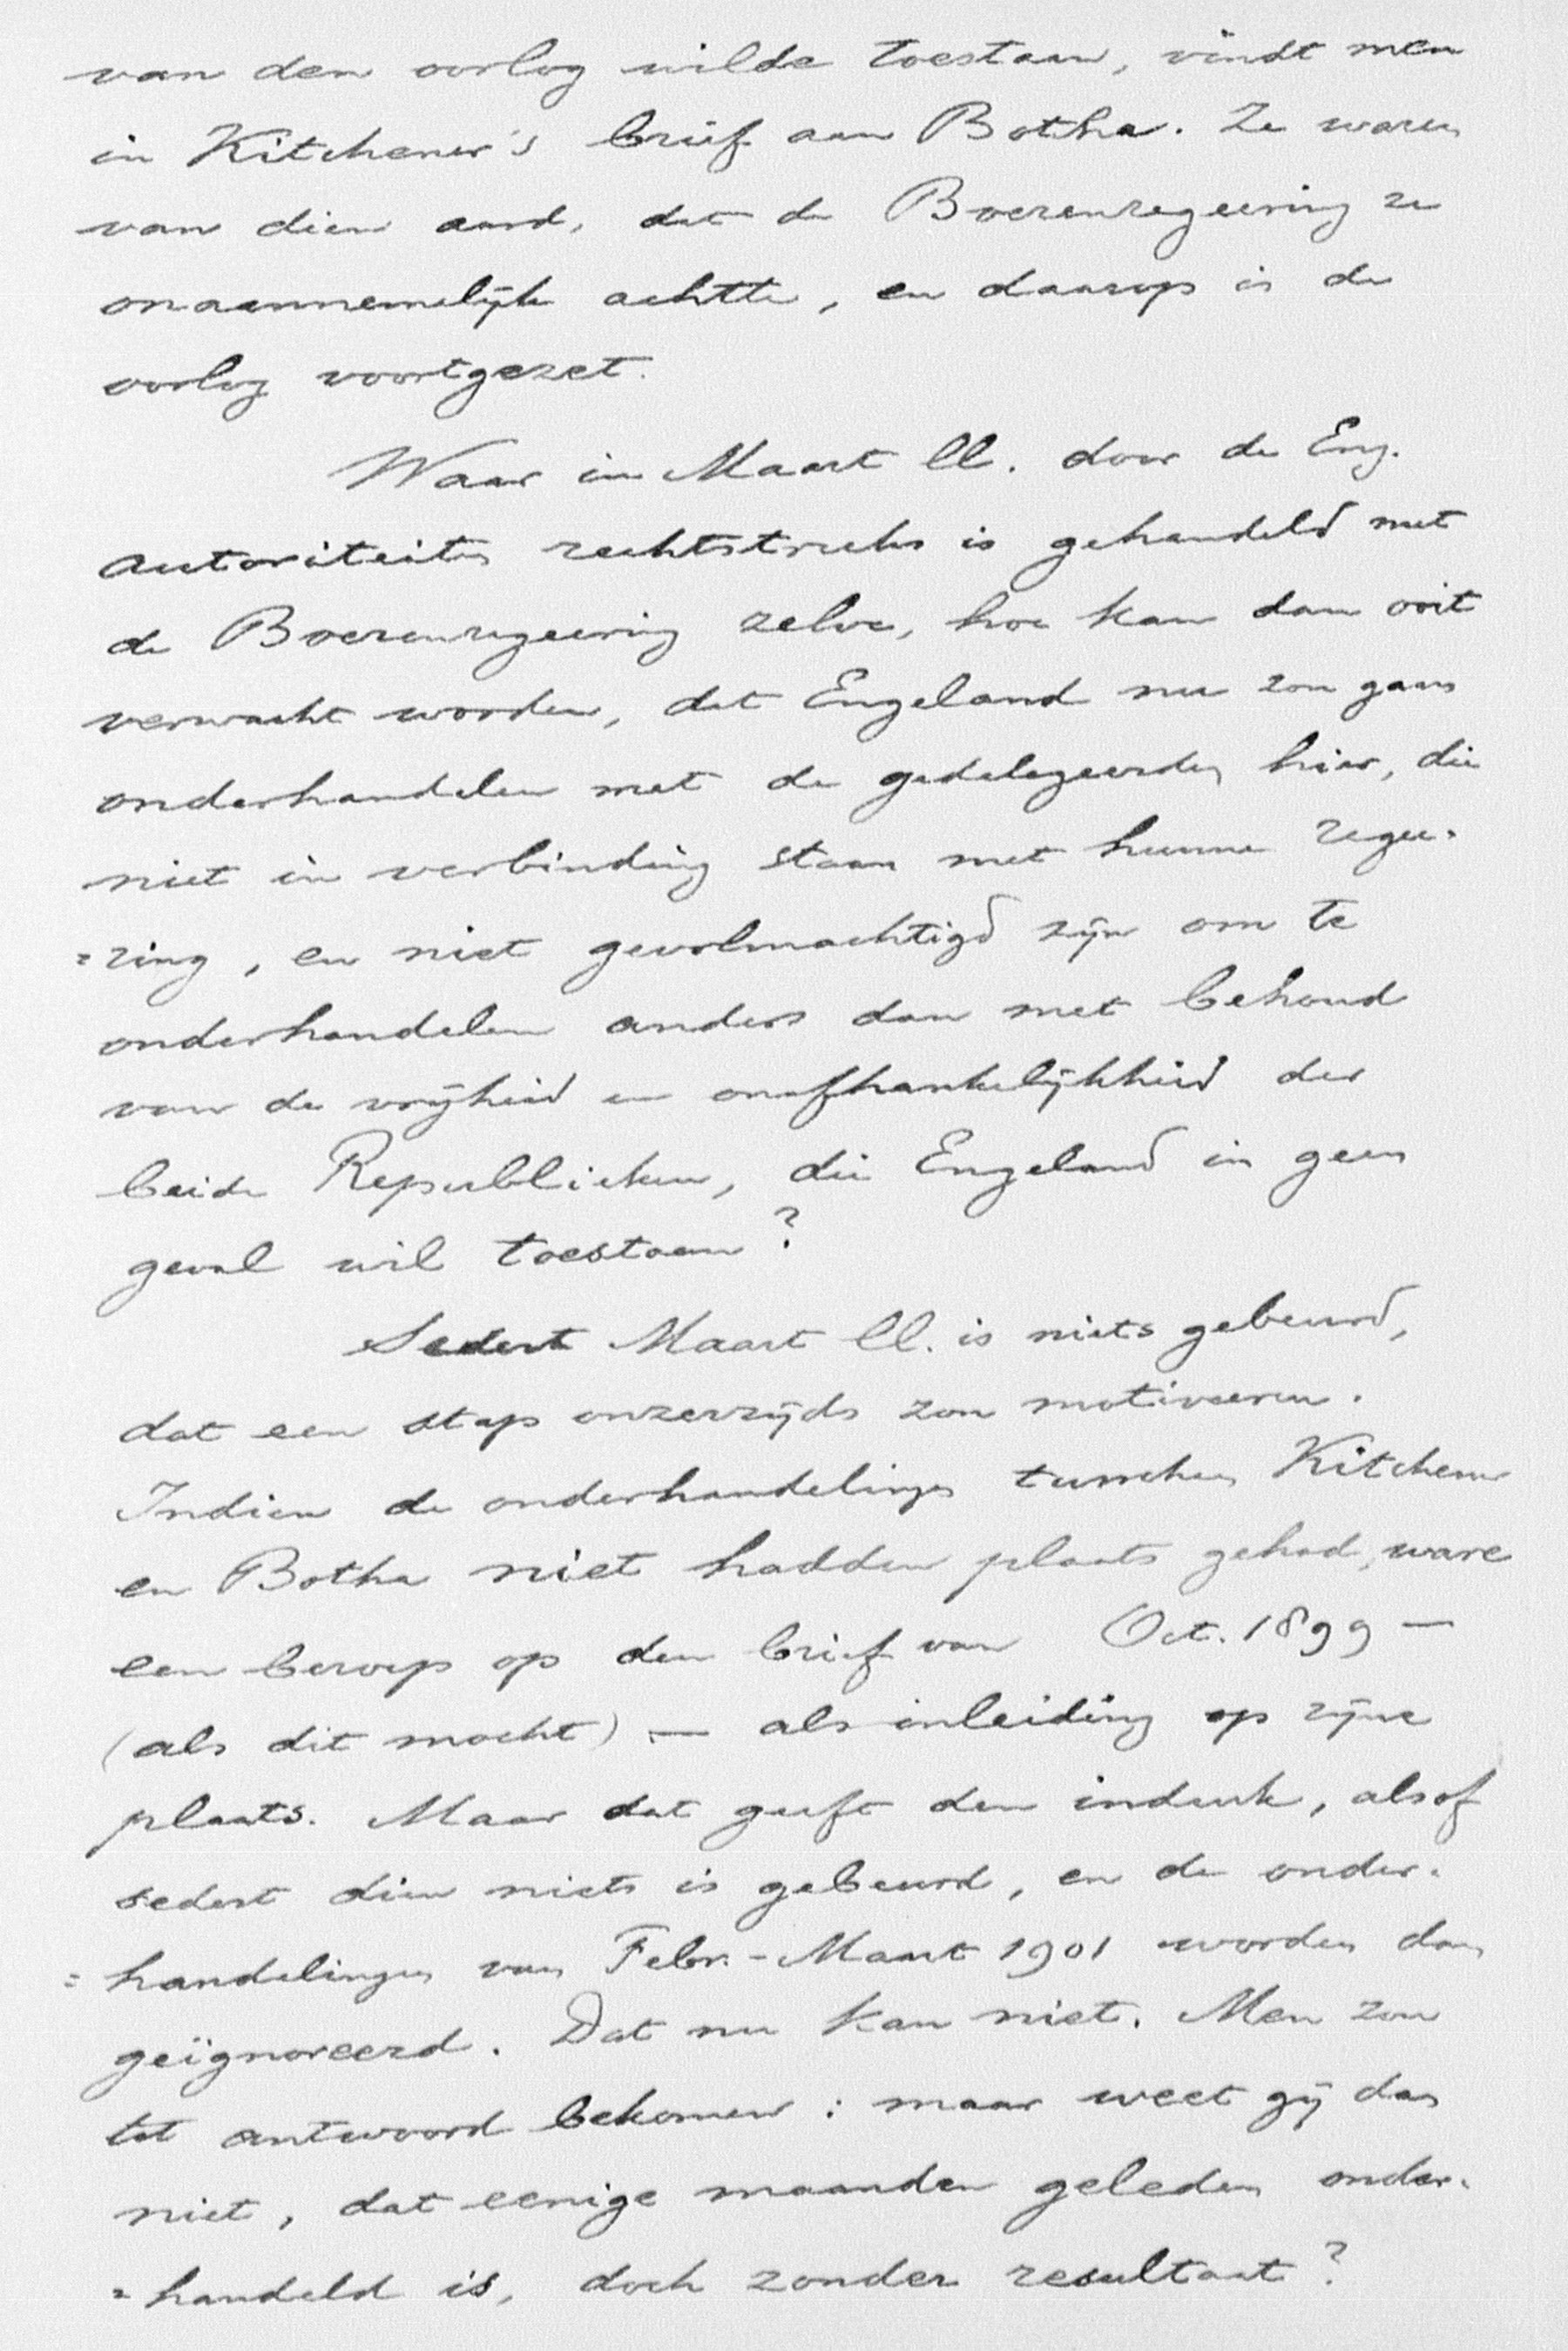 van den oorlog wilde toestaan, vindt men
in Kitchener's brief aan Botha. Ze waren
van dien aard, dat de Boerenregeering ze
onaannemelijk achtte, en daarop is de
oorlog voortgezet.
Waar in Maart ll. door de Eng.
autoriteiten rechtstreeks is gehandeld met
de Boerenregeering zelve, hoe kan dan ooit
verwacht worden, dat Engeland nu zou gaan
onderhandelen met de gedelegeerden hier, die
niet in verbinding staan met hunne regee-
=ring, en niet gevolmachtigd zijn om te
onderhandelen anders dan met behoud
van de vrijheid en onafhankelijkheid der
beide Republieken, die Engeland in geen
geval wil toestaan?
Sedert Maart ll. is niets gebeurd,
dat een stap onzerzijds zou motiveeren.
Indien de onderhandelingen tusschen Kitchener
en Botha niet hadden plaats gehad, ware
een beroep op den brief van Oct. 1899 —
(als dit mocht) — als inleiding op zijne
plaats. Maar dat geeft den indruk, alsof
sedert dien niets is gebeurd, en de onder-
=handelingen van Febr.-Maart 1901 worden dan
geïgnoreerd. Dat nu kan niet. Men zou
tot antwoord bekomen: maar weet gij dan
niet, dat eenige maanden geleden onder-
=handeld is, doch zonder resultaat?